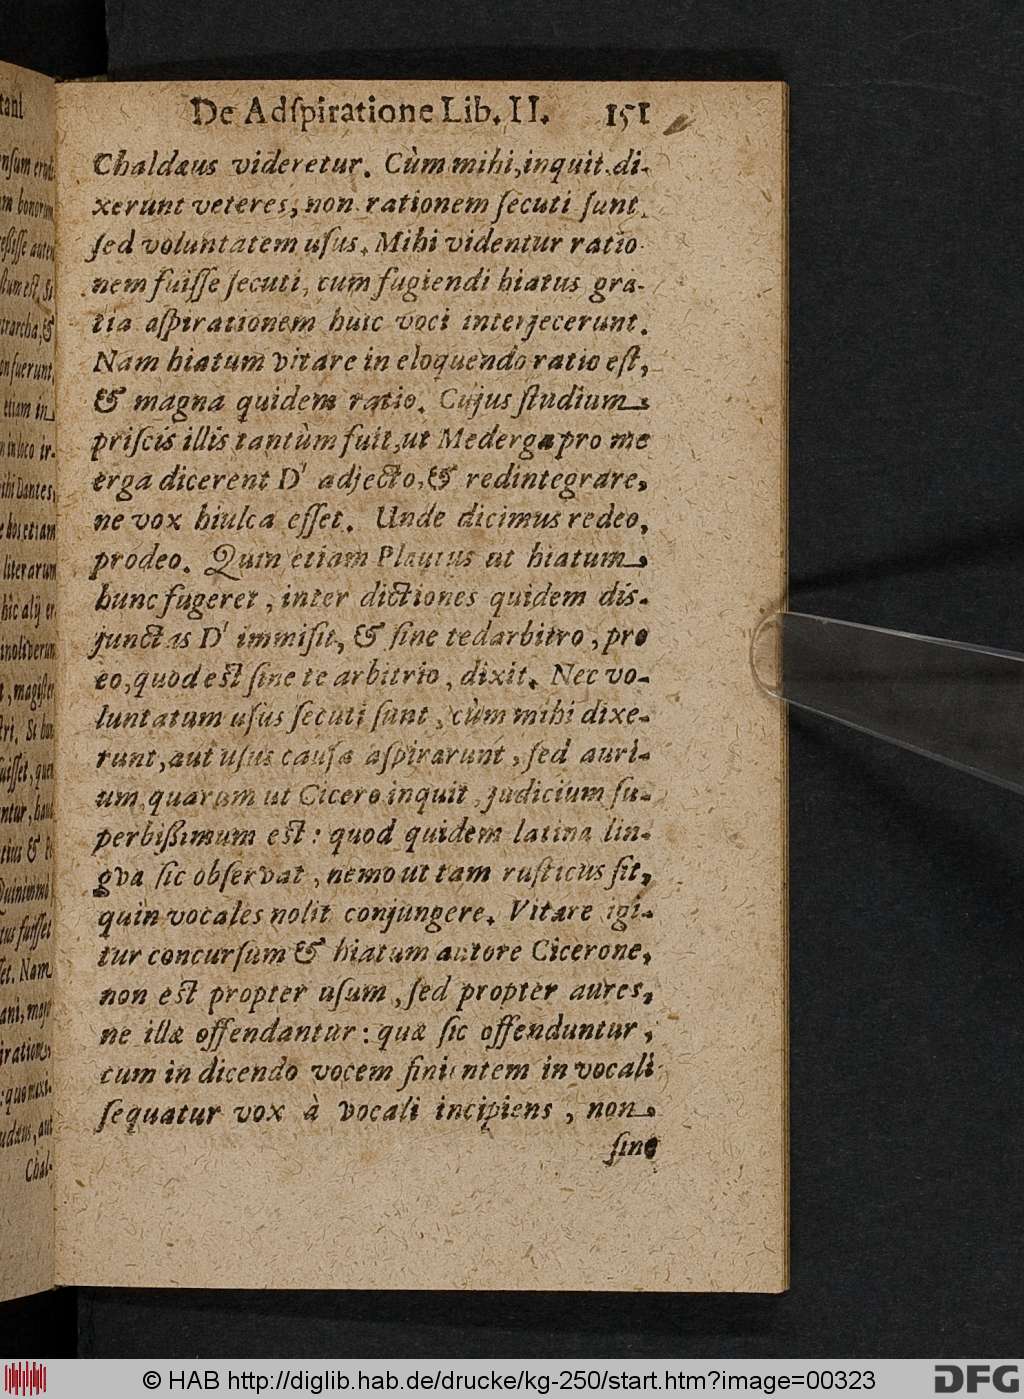 De Adſpiratione Lib. II. 151
Chaldæus videretur. Cùm mihi, inquit. di-
xerunt veteres, non rationem ſecuti ſunt,
ſed voluntatem uſus. Mihi videntur ratio
nem fuiſſe ſecuti, cum fugiendi hiatus gra-
tia aſpirationem huic voci interjecerunt.
Nam hiatum vitare in eloquendo ratio eſt,
& magna quidem ratio. Cujus ſtudium
priſcis illis tantùm fuit, ut Mederga pro me
erga dicerent D' adjecto, & redintegrare,
ne vox hiulca eſſet. Unde dicimus redeo,
prodeo. Quin etiam Plautus ut hiatum
hunc fugeret, inter dictiones quidem dis-
junctas D' immiſit, & ſine tedarbitro, pro
eo, quod eſt ſine te arbitrio, dixit. Nec vo-
luntatum uſus ſecuti ſunt, cùm mihi dixe-
runt, aut uſus cauſa aſpirarunt, ſed auri-
um, quarum ut Cicero inquit, judicium ſu-
perbißimum eſt: quod quidem latina lin-
gva ſic obſervat, nemo ut tam ruſticus ſit,
quin vocales nolit conjungere. Vitare igi-
tur concurſum & hiatum autore Cicerone,
non eſt propter uſum, ſed propter aures,
ne illæ offendantur: quæ ſic offenduntur,
cum in dicendo vocem finientem in vocali
ſequatur vox à vocali incipiens, non
ſine
tani
etiam in
ihi Dantes,
literarum
Chal-
© HAB http://diglib.hab.de/drucke/kg-250/start.htm?image=00323
DFG